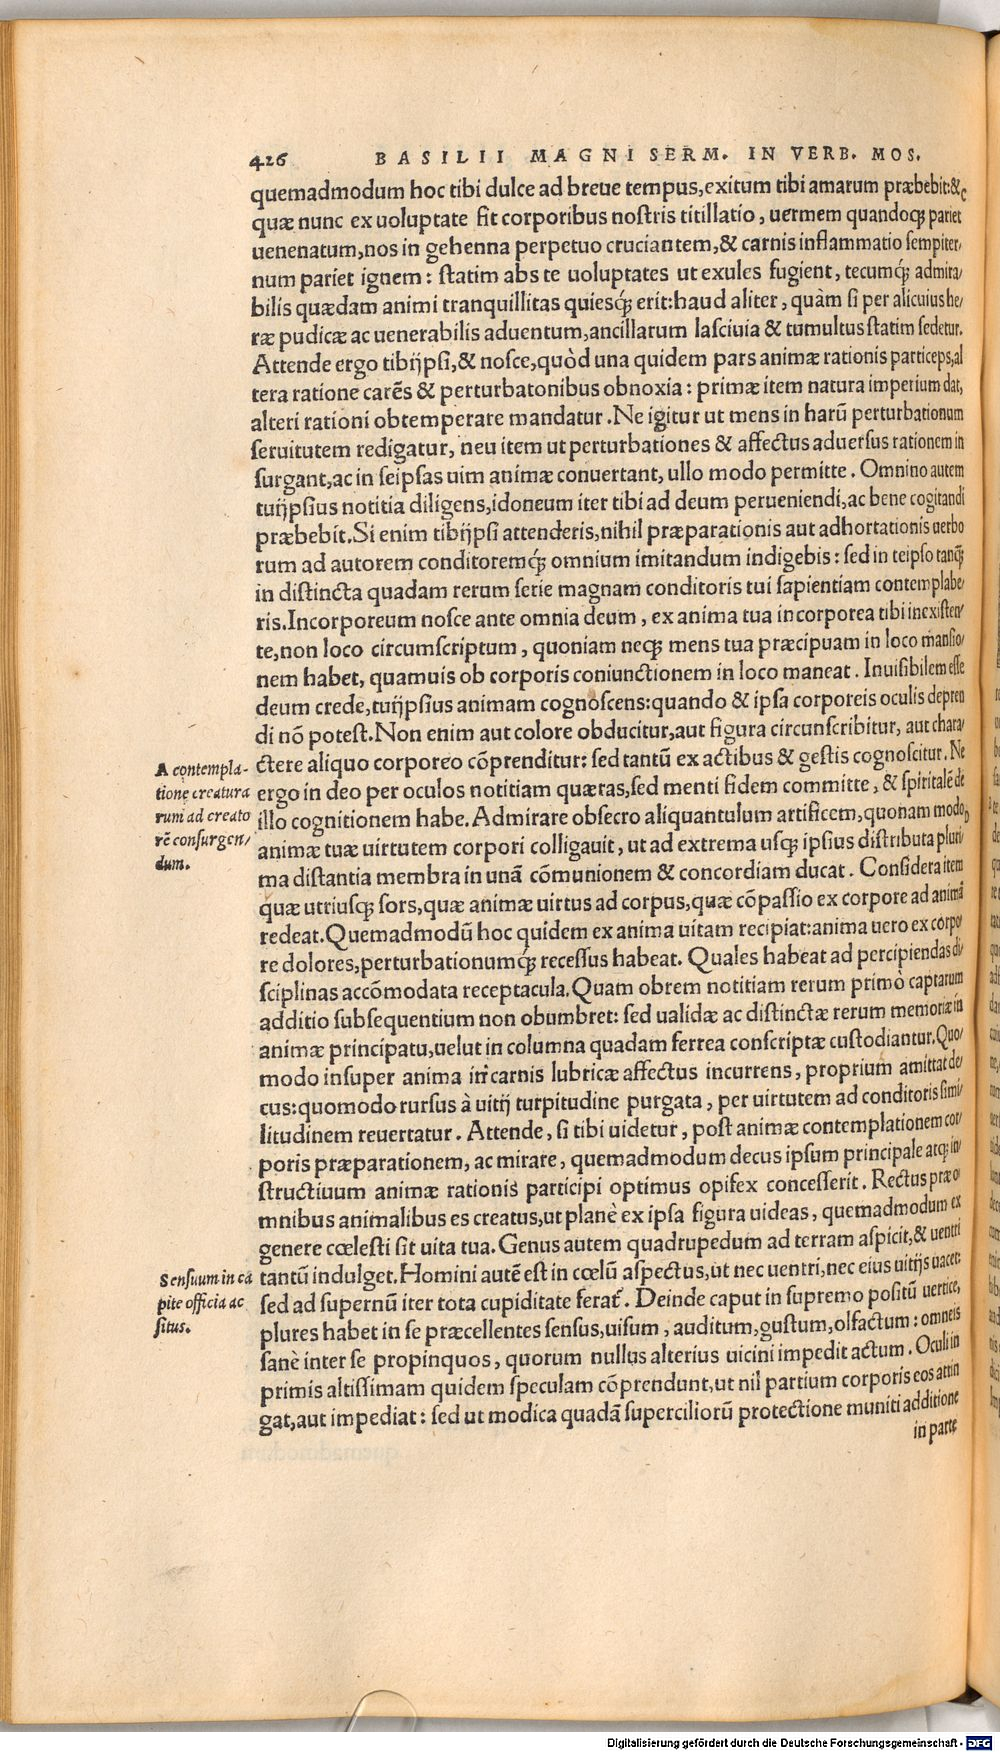 426 BASILII MAGNI SERM. IN VERB. MOS.
quemadmodum hoc tibi dulce ad breue tempus,exitum tibi amarum præbebit:& C
quæ nunc ex uoluptate fit corporibus nostris titillatio, uermem quandoq; pariet
uenenatum,nos in gehenna perpetuo cruciantem,& carnis inflammatio sempiter/
num pariet ignem: statim abs te uoluptates ut exules fugient, tecumq́; admira/
bilis quædam animi tranquillitas quiesq́; erit:haud aliter, quàm si per alicuius he/
ræ pudicæ ac uenerabilis aduentum,ancillarum lasciuia & tumultus statim sedetur.
Attende ergo tibijpsi,& nosce,quòd una quidem pars animæ rationis particeps,al
tera ratione carẽs & perturbatonibus obnoxia: primæ item natura imperium dat,
alteri rationi obtemperare mandatur. Ne igitur ut mens in harũ perturbationum
seruitutem redigatur, neu item ut perturbationes & affectus aduersus rationem in
surgant,ac in seipsas uim animæ conuertant, ullo modo permitte. Omnino autem
tuijpsius notitia diligens,idoneum iter tibi ad deum perueniendi,ac bene cogitandi
præbebit.Si enim tibijpsi attenderis,nihil præparationis aut adhortationis uerbo
rum ad autorem conditoremq́; omnium imitandum indigebis: sed in teipso tanq̃;
in distincta quadam rerum serie magnam conditoris tui sapientiam contemplabe/
ris.Incorporeum nosce ante omnia deum, ex anima tua incorporea tibi inexisten/
te,non loco circumscriptum, quoniam neq; mens tua præcipuam in loco mansio/
nem habet, quamuis ob corporis coniunctionem in loco maneat. Inuisibilem esse
deum crede,tuijpsius animam cognoscens:quando & ipsa corporeis oculis depren
di nõ potest.Non enim aut colore obducitur,aut figura circunscribitur, aut chara/
ctere aliquo corporeo cõprenditur: sed tantũ ex actibus & gestis cognoscitur. Ne
ergo in deo per oculos notitiam quæras,sed menti fidem committe, & spiritalẽ de
illo cognitionem habe. Admirare obsecro aliquantulum artificem,quonam modo D
animæ tuæ uirtutem corpori colligauit, ut ad extrema usq; ipsius distributa pluri/
ma distantia membra in unã cõmunionem & concordiam ducat. Considera item
quæ utriusq; sors,quæ animæ uirtus ad corpus,quæ cõpassio ex corpore ad animã
redeat.Quemadmodũ hoc quidem ex anima uitam recipiat:anima uero ex corpo/
re dolores,perturbationumq́; recessus habeat. Quales habeat ad percipiendas di/
sciplinas accõmodata receptacula.Quam obrem notitiam rerum primò captarum
additio subsequentium non obumbret: sed ualidæ ac distinctæ rerum memoriæ in
animæ principatu,uelut in columna quadam ferrea conscriptæ custodiantur.Quo/
modo insuper anima in carnis lubricæ affectus incurrens, proprium amittat de/
cus:quomodo rursus à uitij turpitudine purgata, per uirtutem ad conditoris simi/
litudinem reuertatur. Attende, si tibi uidetur, post animæ contemplationem cor/
poris præparationem, ac mirare, quemadmodum decus ipsum principale atq; in/
structiuum animæ rationis participi optimus opifex concesserit. Rectus præ o/
mnibus animalibus es creatus,ut planè ex ipsa figura uideas, quemadmodum ex
genere cœlesti sit uita tua. Genus autem quadrupedum ad terram aspicit,& uentri
tantũ indulget.Homini autẽ est in cœlũ aspectus,ut nec uentri,nec eius uitijs uacet:
sed ad supernũ iter tota cupiditate ferat̃. Deinde caput in supremo positũ uertice,
plures habet in se præcellentes sensus,uisum, auditum,gustum,olfactum: omneis
sanè inter se propinquos, quorum nullus alterius uicini impedit actum. Oculi in
primis altissimam quidem speculam cõprendunt,ut nil partium corporis eos attin
gat,aut impediat: sed ut modica quadã superciliorũ protectione muniti additione
in parte
A contempla-
tione creatura
rum ad creato
rẽ consurgen/
dum.
Sensuum in ca
pite officia ac
situs.
Digitalisierung gefördert durch die Deutsche Forschungsgemeinschaft - DFG